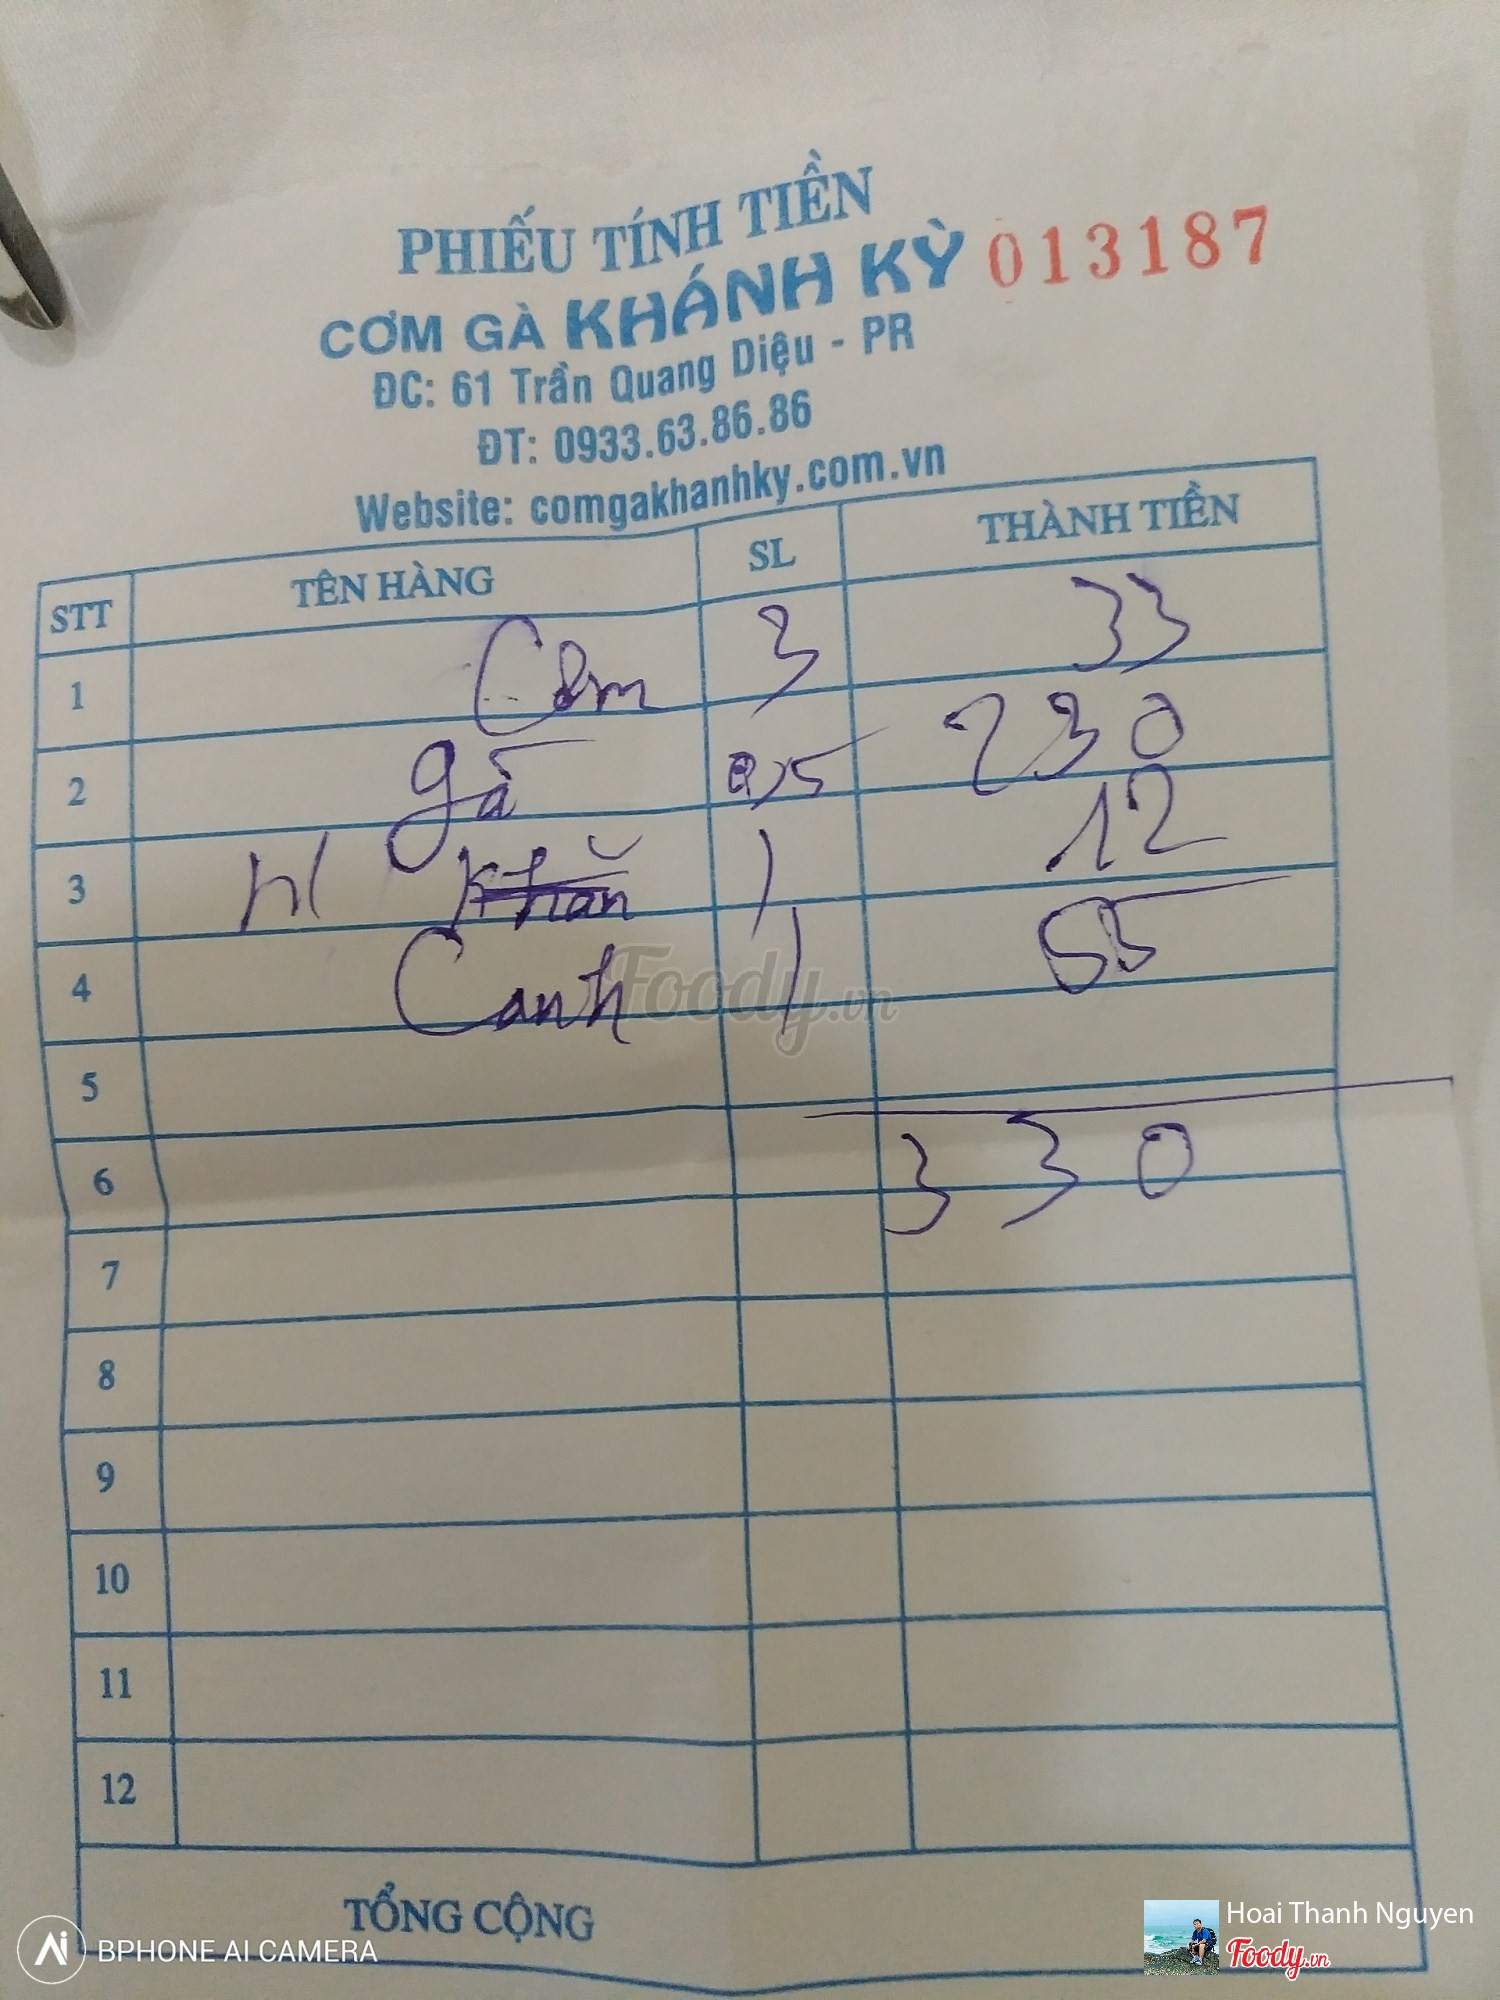 PHIẾU TÍNH TIỀN
CƠM GÀ KHÁNH KỲ 013187
ĐC: 61 Trần Quang Diệu - PR
ĐT: 0933.63.86.86
Website: comgakhanhky.com.vn
STT TÊN HÀNG SL THÀNH TIỀN
1 Cơm 3 33
2 gà 0,5 230
3 Khăn 1 12
4 Canh 1 55
5
6 330
7
8
9
10
11
12
TỔNG CỘNG
Foody.vn
BPHONE AI CAMERA
Hoai Thanh Nguyen
Foody.vn